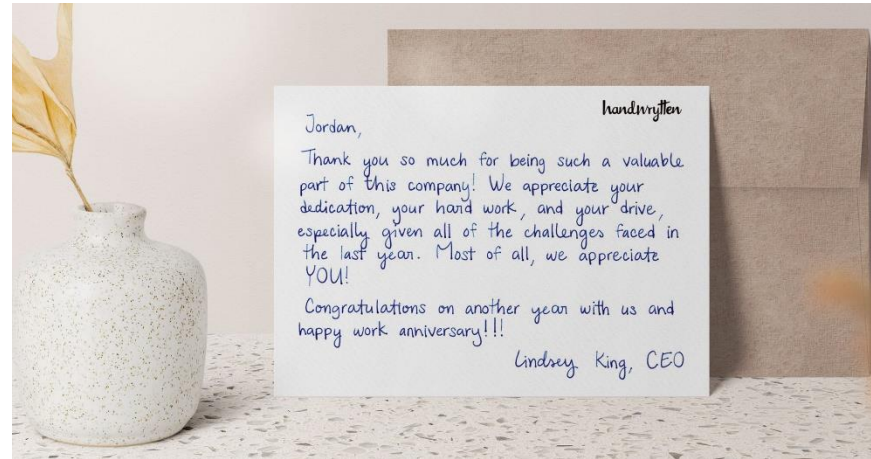 handwrytten
Jordan,
Thank you so much for being such a valuable
part of this company! We appreciate your
dedication, your hard work, and your drive,
especially given all of the challenges faced in
the last year. Most of all, we appreciate
YOU!
Congratulations on another year with us and
happy work anniversary!!!
Lindsey King, CEO